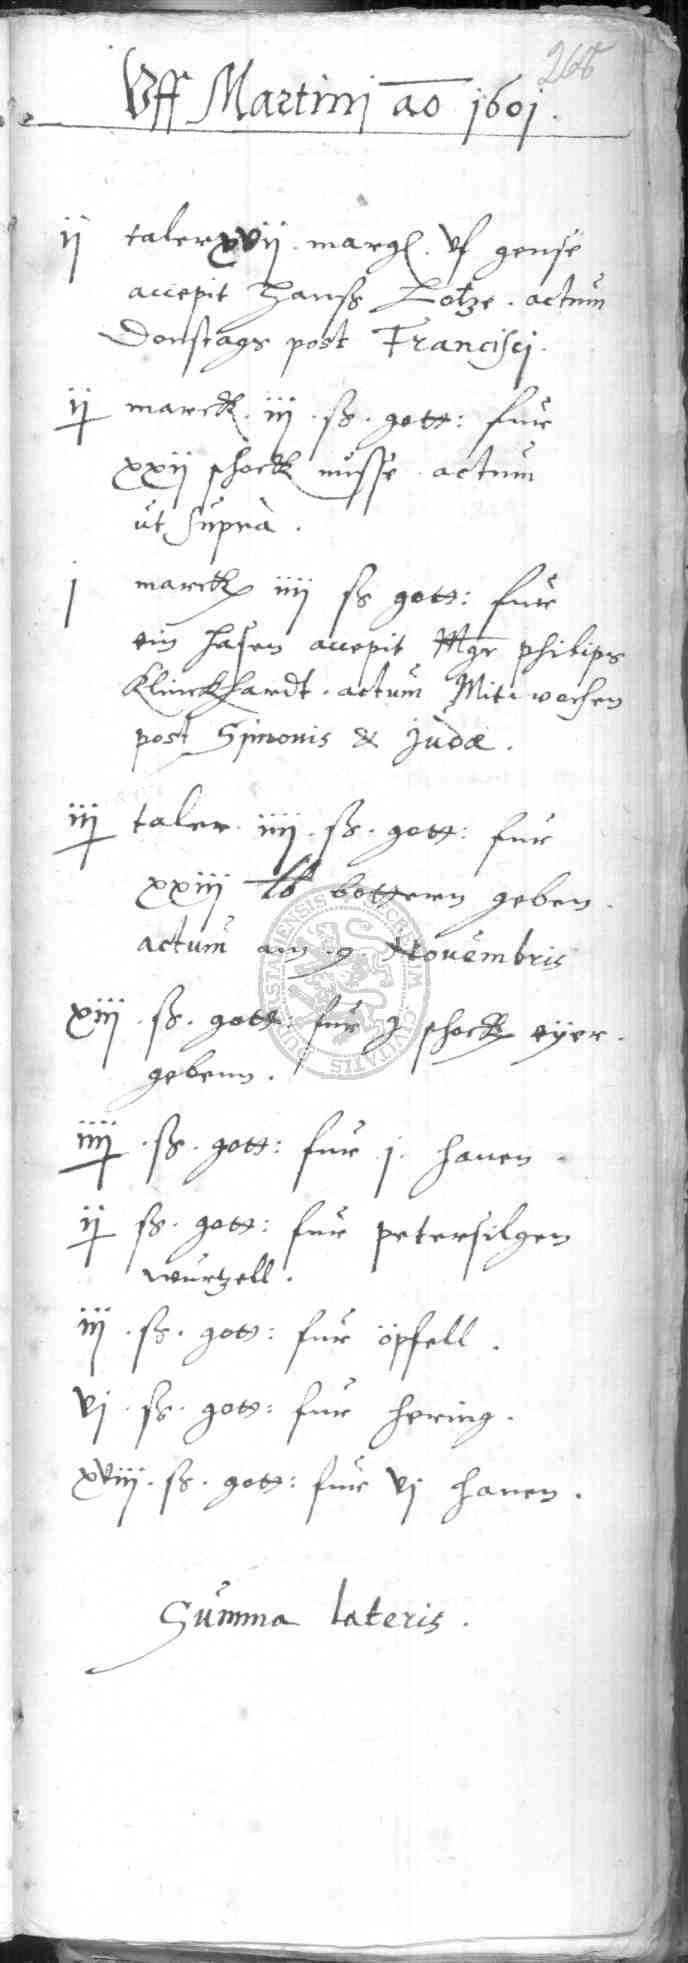 266
Vff Martinj ao 1601.
ij taler xvij margl. vf gense
accepit Hanss Lotze. actum
Donstags post Francisci.
ij marck. iij. ss. gott: fur
xxij schock nusse. actum
ut supra.
j marck iiij ss gott: fur
ein hasen accepit Mgr philips
Klinckhardt. actum Mitwochen
post Simonis & Judæ.
iij taler. iiij. ss. gott: fur
xxiij lb bottern geben.
actum am 9 Novembris
xiij. ss. gott: fur schock eyer.
gebenn.
iiij. ss. gott: fur j. hanen.
ij ss. gott: fur petersilgen
wurtzell.
iij. ss. gott: fur öpfell.
vj. ss. gott: fur hering.
xviij. ss. gott: fur vj hanen.
Summa lateris.